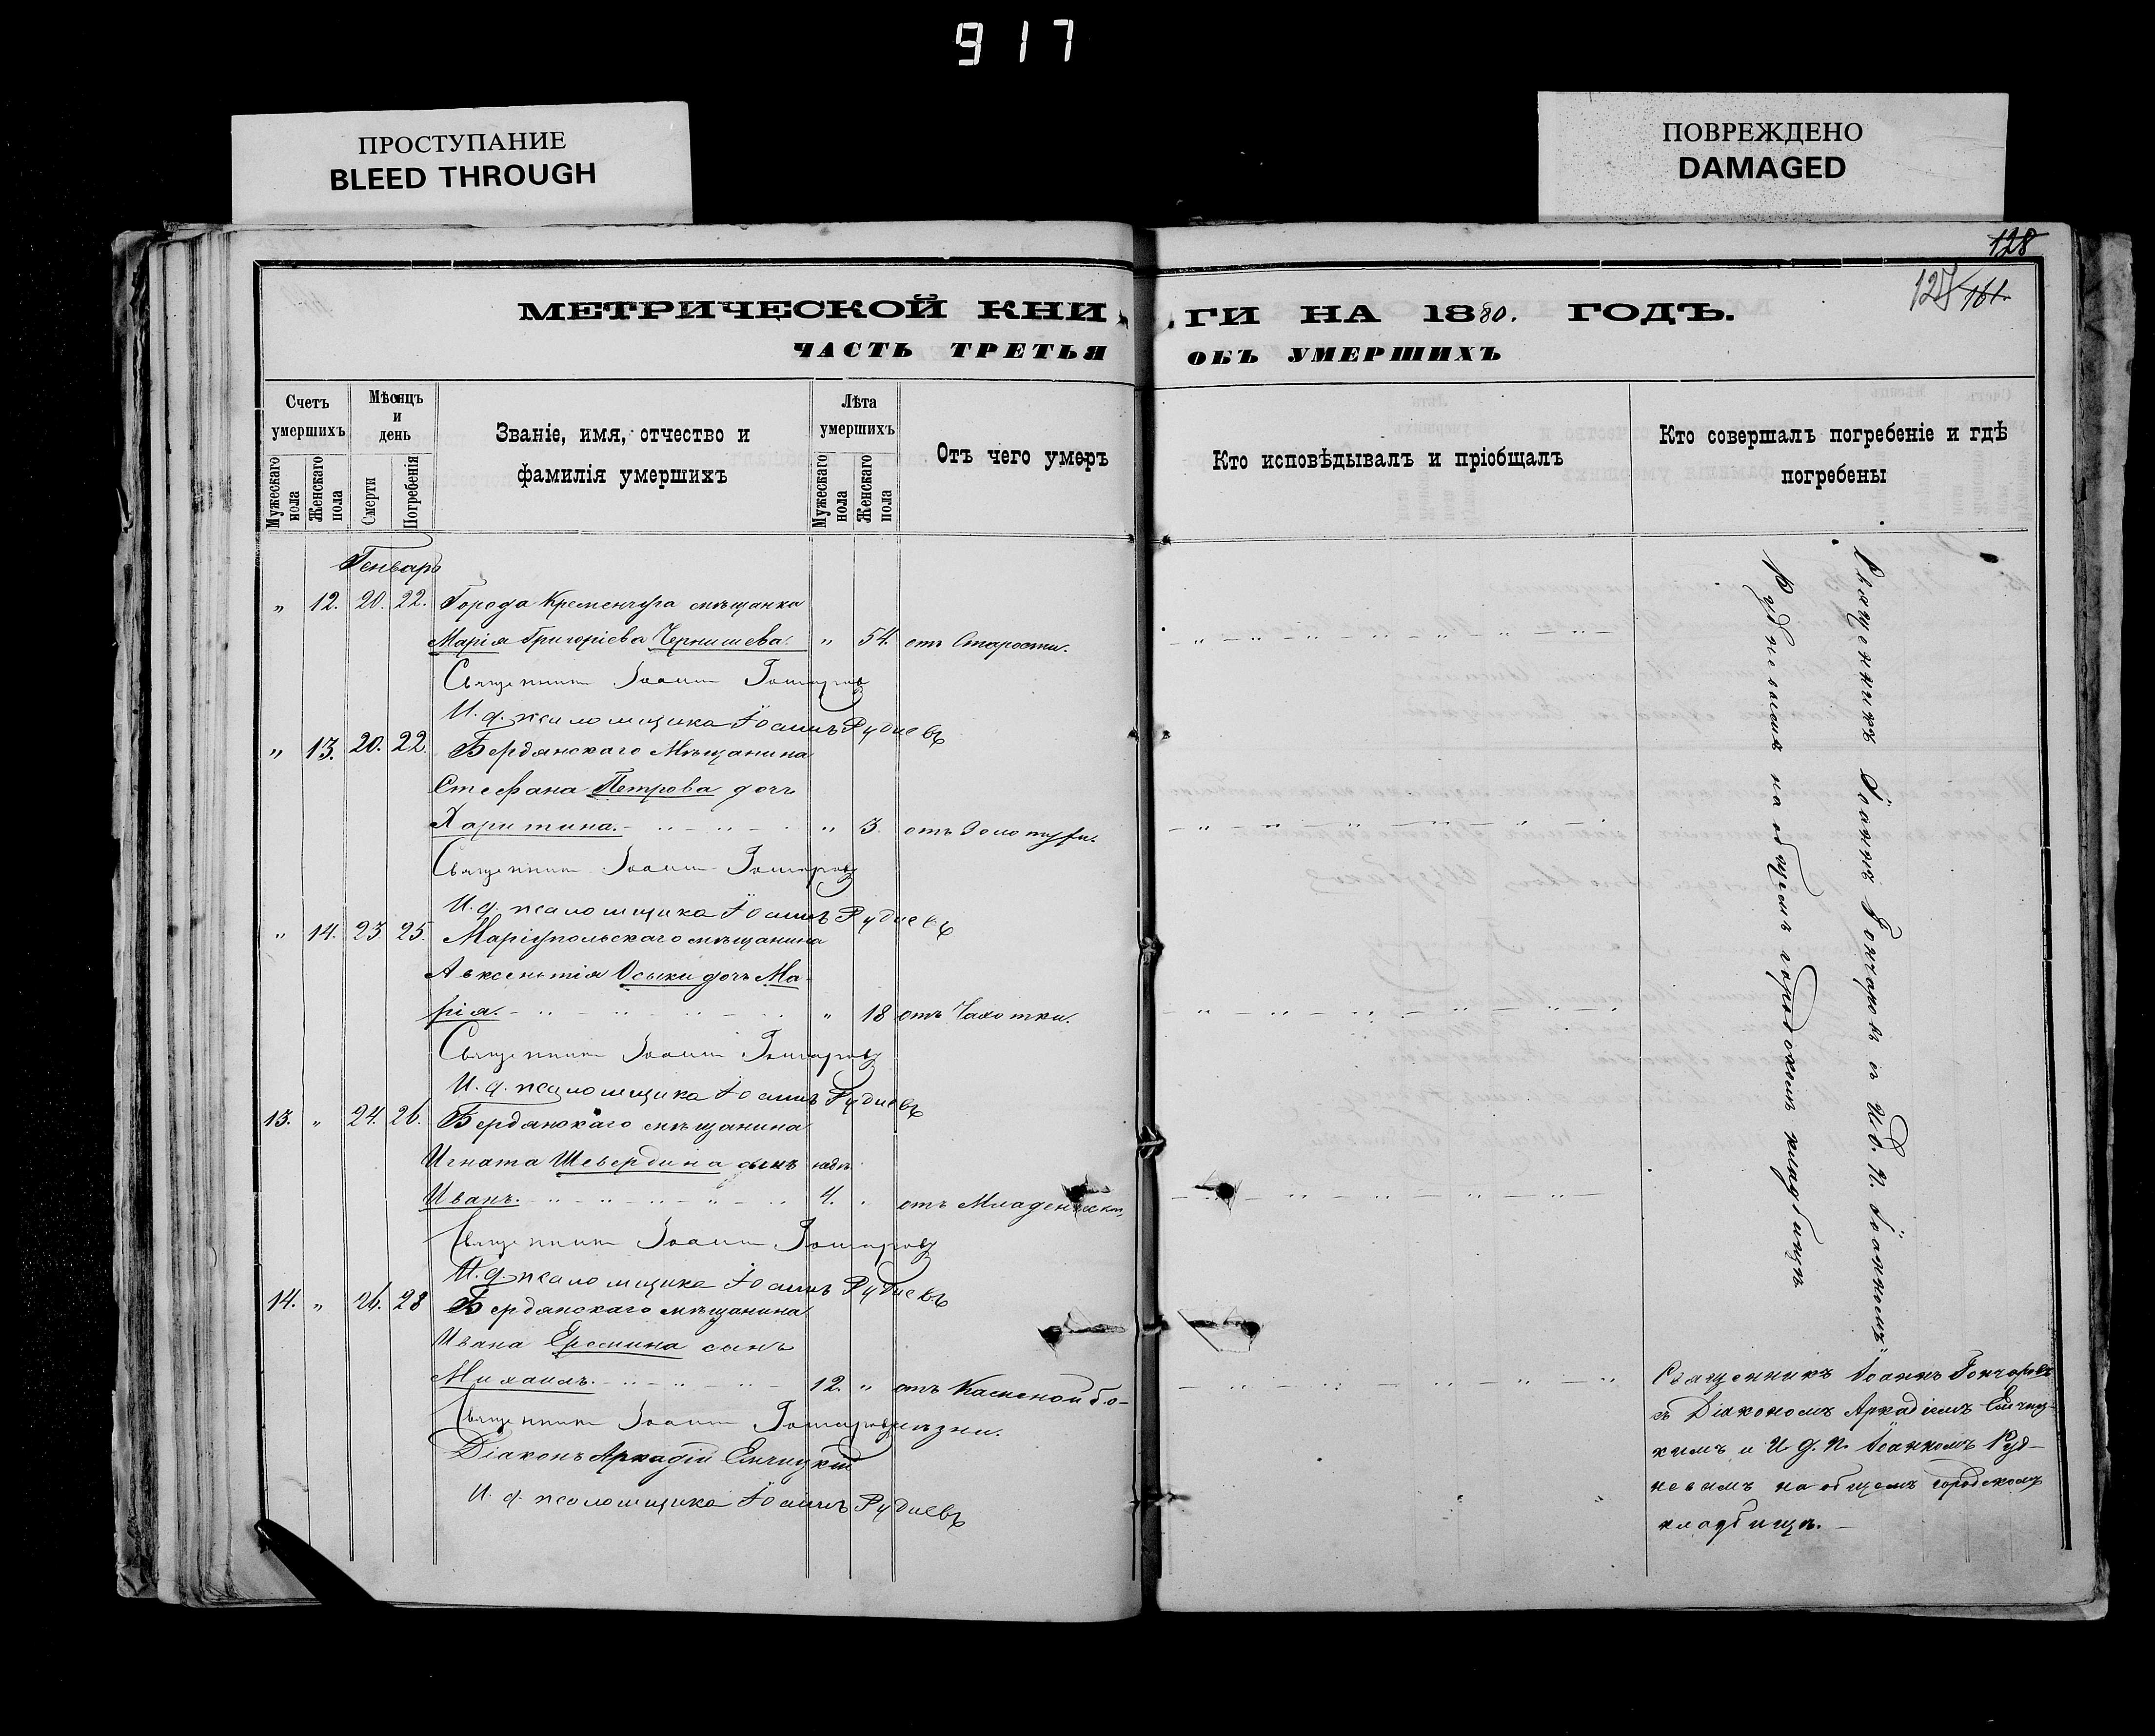 917
ПРОСТУПАНИЕ
BLEED THROUGH
ПОВРЕЖДЕНО
DAMAGED
128
161.
МЕТРИЧЕСКОЙ КНИ
ГИ НА 1880. ГОДЪ.
ЧАСТЬ ТРЕТЬЯ
ОБЪ УМЕРШИХЪ
Счетъ умершихъ
Мужескаго пола
Женскаго пола
Мѣсяцъ и день
Смерти
Погребенія
Званіе, имя, отчество и
фамилія умершихъ
Лѣта умершихъ
Мужескаго пола
Женскаго пола
Отъ чего умеръ
Кто исповѣдывалъ и пріобщалъ
Кто совершалъ погребеніе и гдѣ
погребены
Генварь
" 12. 20. 22. Города Кременчуга мѣщанка
Марія Григоріева Чернишева. " 54. отъ Старости.
Священникъ Іоаннъ Гончаровъ
И. д. псаломщика Іоаннъ Рудневъ
" 13. 20. 22. Бердянскаго Мѣщанина
Стефана Петрова дочь
Харитина. " 3. отъ Золотухи.
Священникъ Іоаннъ Гончаровъ
И. д. псаломщика Іоаннъ Рудневъ
" 14. 23. 25. Маріупольскаго мѣщанина
Авксентія Осыки дочь Ма-
рія. " 18 отъ Чахотки.
Священникъ Іоаннъ Гончаровъ
И. д. псаломщика Іоаннъ Рудневъ
13. " 24. 26. Бердянскаго мѣщанина
Игната Шевердина сынъ
Иванъ. 4. " отъ
Священникъ Іоаннъ Гончаровъ
И. д. псаломщика Іоаннъ Рудневъ
14. " 26. 28 Бердянскаго мѣщанина
Ивана Еремина сынъ
Михаилъ. 12. " отъ Каменой бо-
лѣзни.
Священникъ Іоаннъ Гончаровъ
Діаконъ Аркадій
И. д. псаломщика Іоаннъ Рудневъ
Священникъ Іоаннъ Гончаровъ съ И. д. п. Іоанномъ
Рудневымъ на общемъ городскомъ кладбищѣ
Священникъ Іоаннъ Гончаровъ
съ Діакономъ Аркадіемъ
кимъ и И. д. п. Іоанномъ Руд-
невымъ на общемъ городскомъ
кладбищѣ.